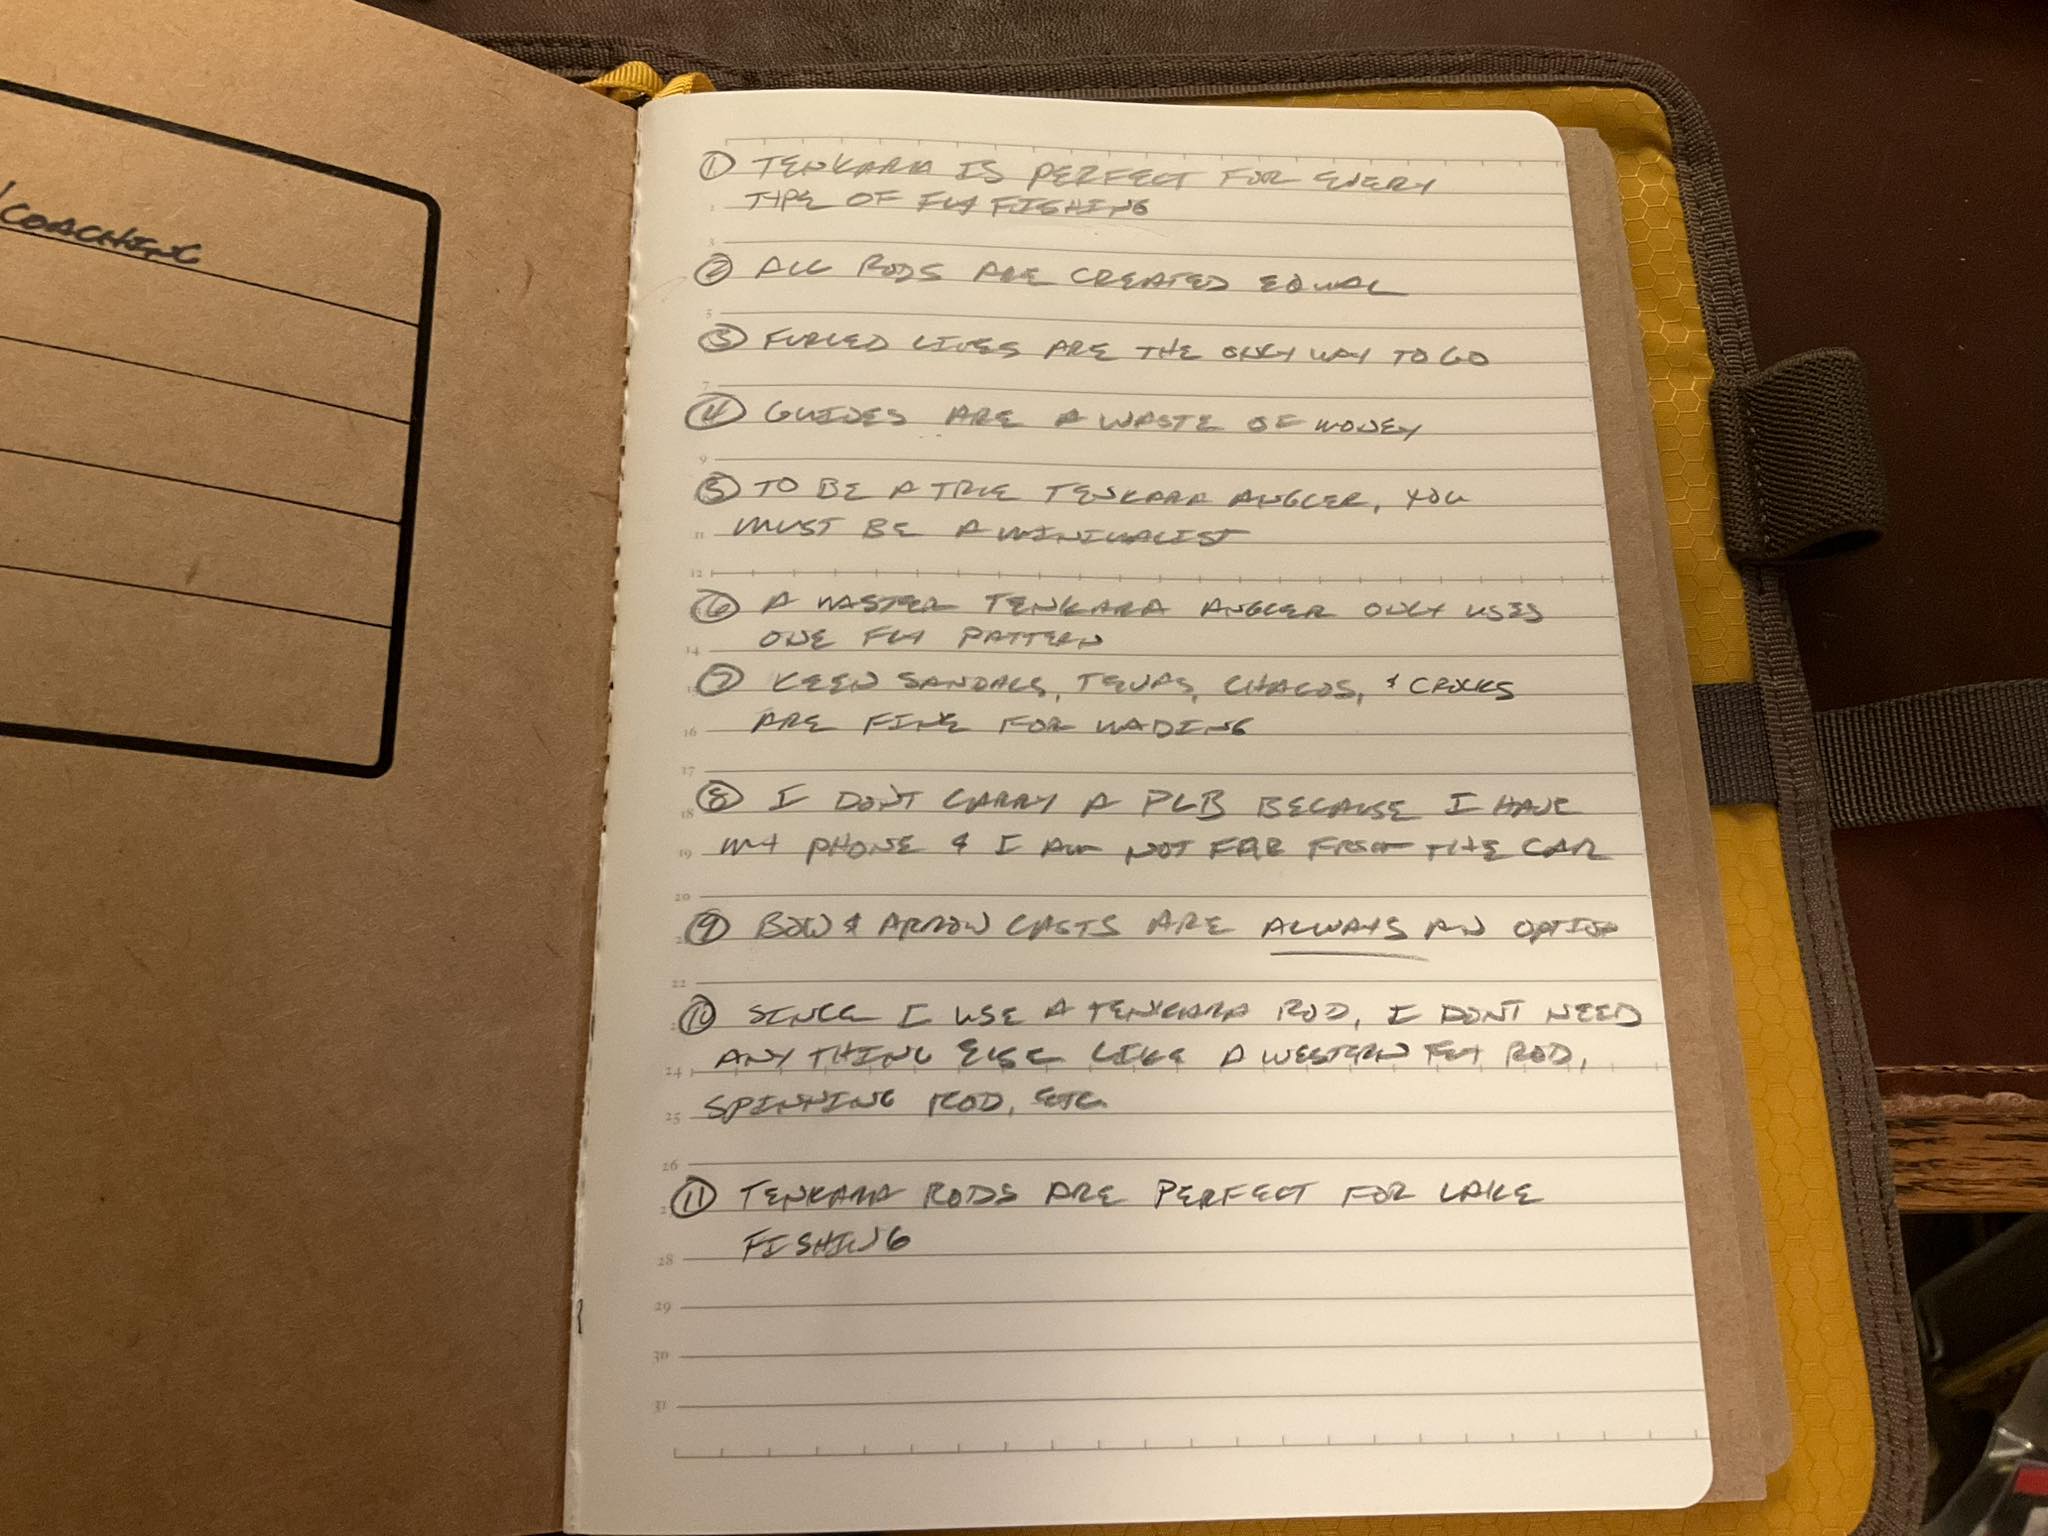 COACHING
① TENKARA IS PERFECT FOR EVERY
TYPE OF FLY FISHING
② ALL RODS ARE CREATED EQUAL
③ FURLED LINES ARE THE ONLY WAY TO GO
④ GUIDES ARE A WASTE OF MONEY
⑤ TO BE A TRUE TENKARA ANGLER, YOU
MUST BE A MINIMALIST
⑥ A MASTER TENKARA ANGLER ONLY USES
ONE FLY PATTERN
⑦ KEEN SANDALS, TEVAS, CHACOS, & CROCKS
ARE FINE FOR WADING
⑧ I DONT CARRY A PLB BECAUSE I HAVE
MY PHONE & I AM NOT FAR FROM THE CAR
⑨ BOW & ARROW CASTS ARE ALWAYS AN OPTION
⑩ SINCE I USE A TENKARA ROD, I DONT NEED
ANY THING ELSE LIKE A WESTERN FLY ROD,
SPINNING ROD, ETC.
⑪ TENKARA RODS ARE PERFECT FOR LAKE
FISHING